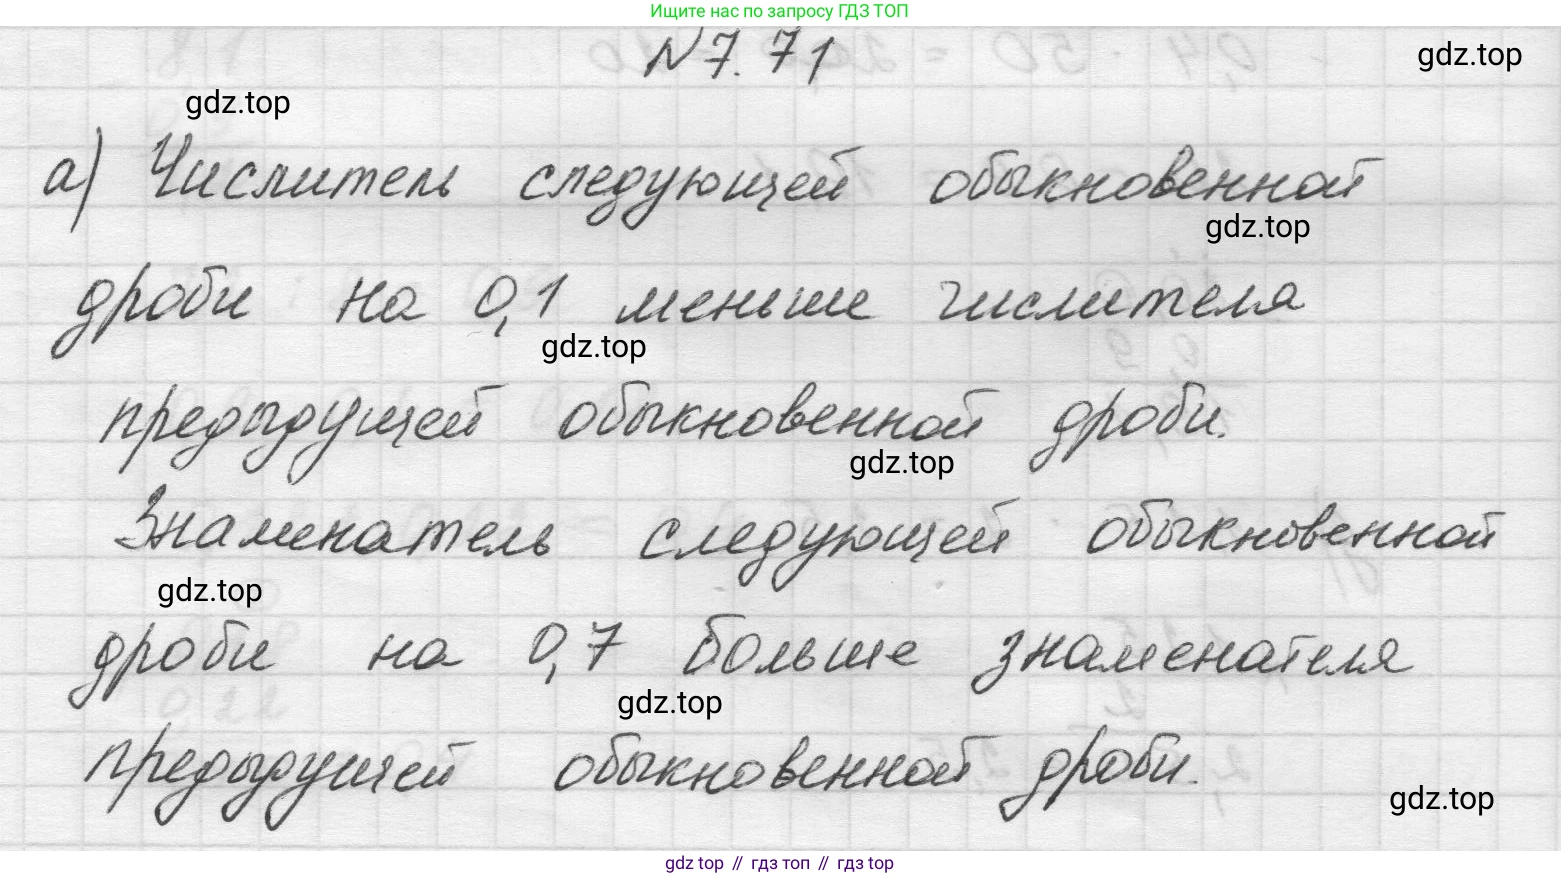 Ищите нас по запросу ГДЗ ТОП
N 7.71
gdz.top
gdz.top
а) Числитель следующей обыкновенной
gdz.top
дроби на 0,1 меньше числителя
gdz.top
предыдущей обыкновенной дроби.
gdz.top
Знаменатель следующей обыкновенной
gdz.top
дроби на 0,7 больше знаменателя
gdz.top
предыдущей обыкновенной дроби.
gdz.top
gdz top // гдз топ // гдз top